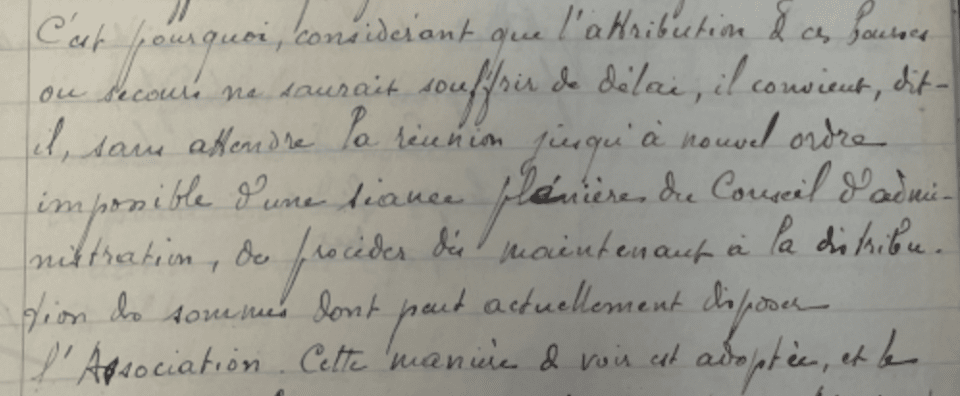 C'est pourquoi, considérant que l'attribution de ces bourses
ou secours ne saurait souffrir de délai, il convient, dit-
il, sans attendre la réunion jusqu'à nouvel ordre
impossible d'une séance plénière du Conseil d'admi-
nistration, de procéder dès maintenant à la distribu-
tion des sommes dont peut actuellement disposer
l'Association. Cette manière de voir est adoptée, et le